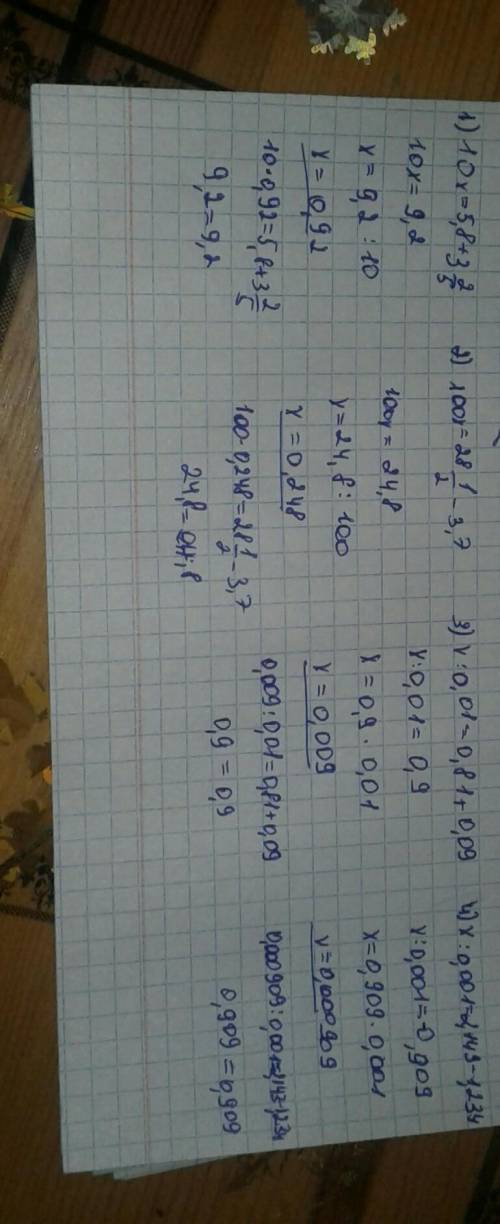 1) 10x=5,8+3 2/5
10x=9,2
x=9,2:10
x=0,92
10·0,92=5,8+3 2/5
9,2=9,2
2) 100x=28 1/2-3,7
100x=24,8
x=24,8:100
x=0,248
100·0,248=28 1/2-3,7
24,8=24,8
3) x:0,01=0,81+0,09
x:0,01=0,9
x=0,9·0,01
x=0,009
0,009:0,01=0,81+0,09
0,9=0,9
4) x:0,001=2,143-1,234
x:0,001=0,909
x=0,909·0,001
x=0,000909
0,000909:0,001=2,143-1,234
0,909=0,909